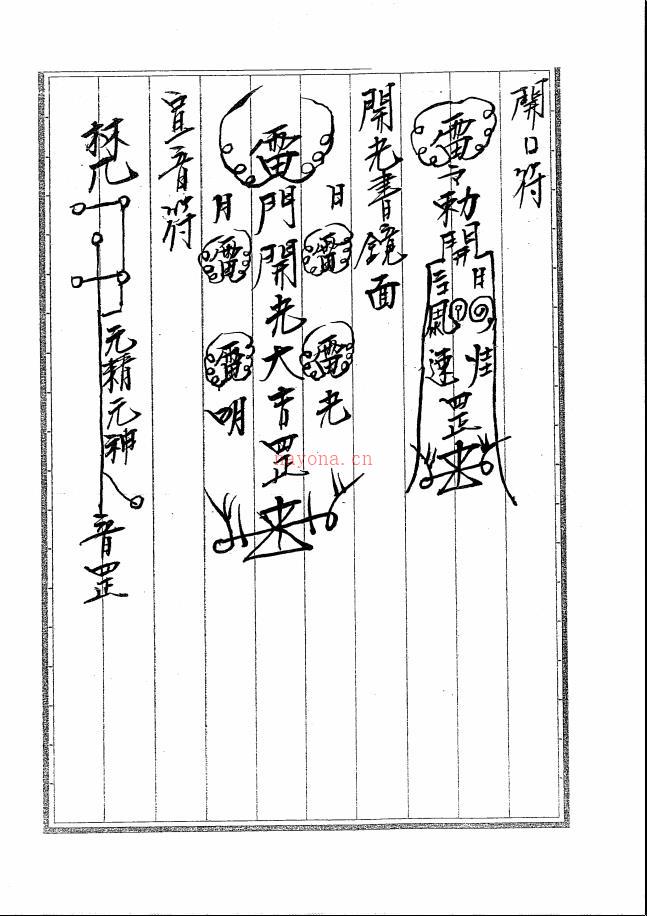 開口符
雷令勅開
日
速罡
開光書鏡面
日雷雷光
雷門開光大吉罡
月雷雷明
宣音符
梵
一元精元神
音罡
nayona.cn